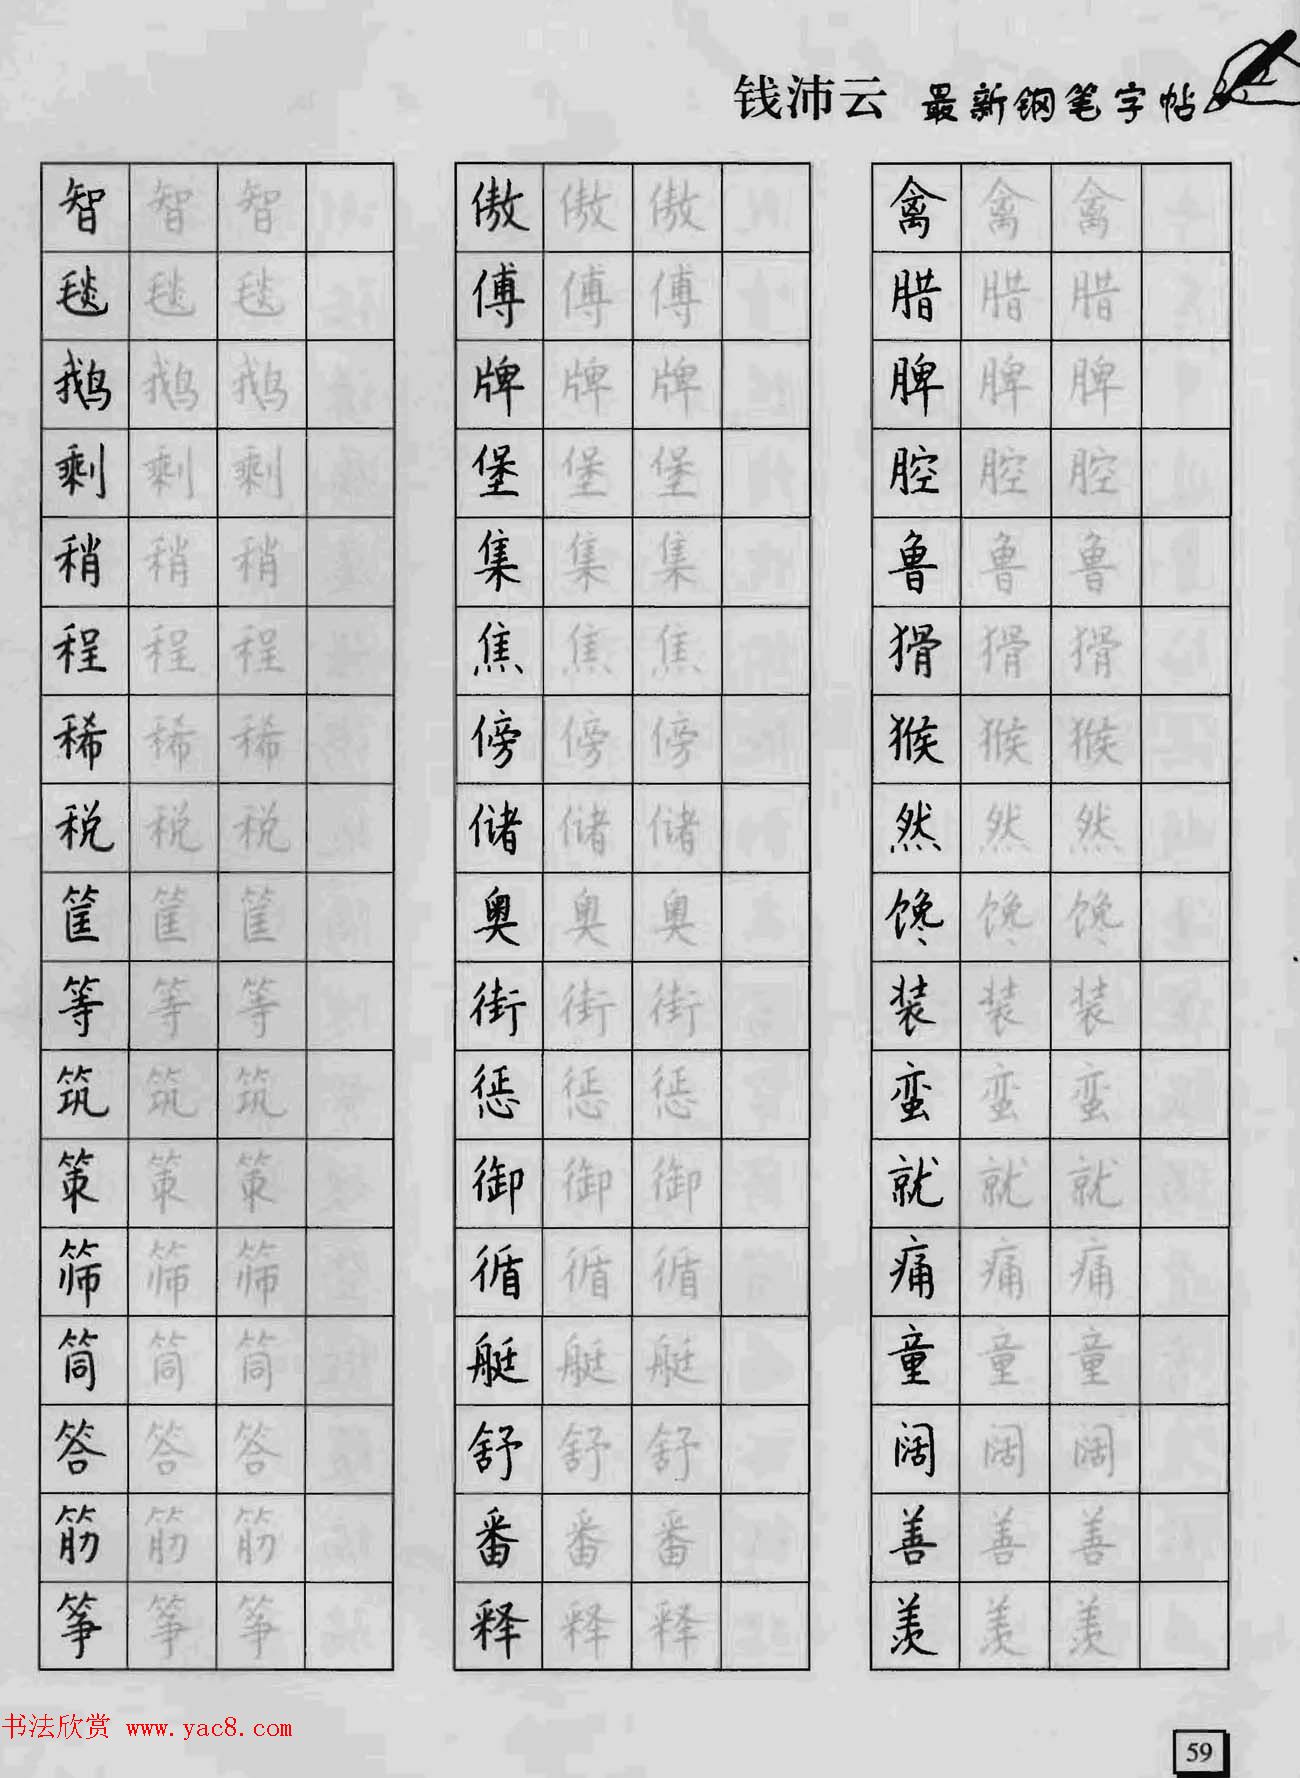 钱沛云 最新钢笔字帖
智 智 智 傲 傲 傲 禽 禽 禽
毯 毯 毯 傅 傅 傅 腊 腊 腊
鹅 鹅 鹅 牌 牌 牌 脾 脾 脾
剩 剩 剩 堡 堡 堡 腔 腔 腔
稍 稍 稍 集 集 集 鲁 鲁 鲁
程 程 程 焦 焦 焦 猾 猾 猾
稀 稀 稀 傍 傍 傍 猴 猴 猴
税 税 税 储 储 储 然 然 然
筐 筐 筐 奥 奥 奥 馋 馋 馋
等 等 等 街 街 街 装 装 装
筑 筑 筑 惩 惩 惩 蛮 蛮 蛮
策 策 策 御 御 御 就 就 就
筛 筛 筛 循 循 循 痛 痛 痛
筒 筒 筒 艇 艇 艇 童 童 童
答 答 答 舒 舒 舒 阔 阔 阔
筋 筋 筋 番 番 番 善 善 善
筝 筝 筝 释 释 释 羡 羡 羡
书法欣赏 www.yac8.com
59